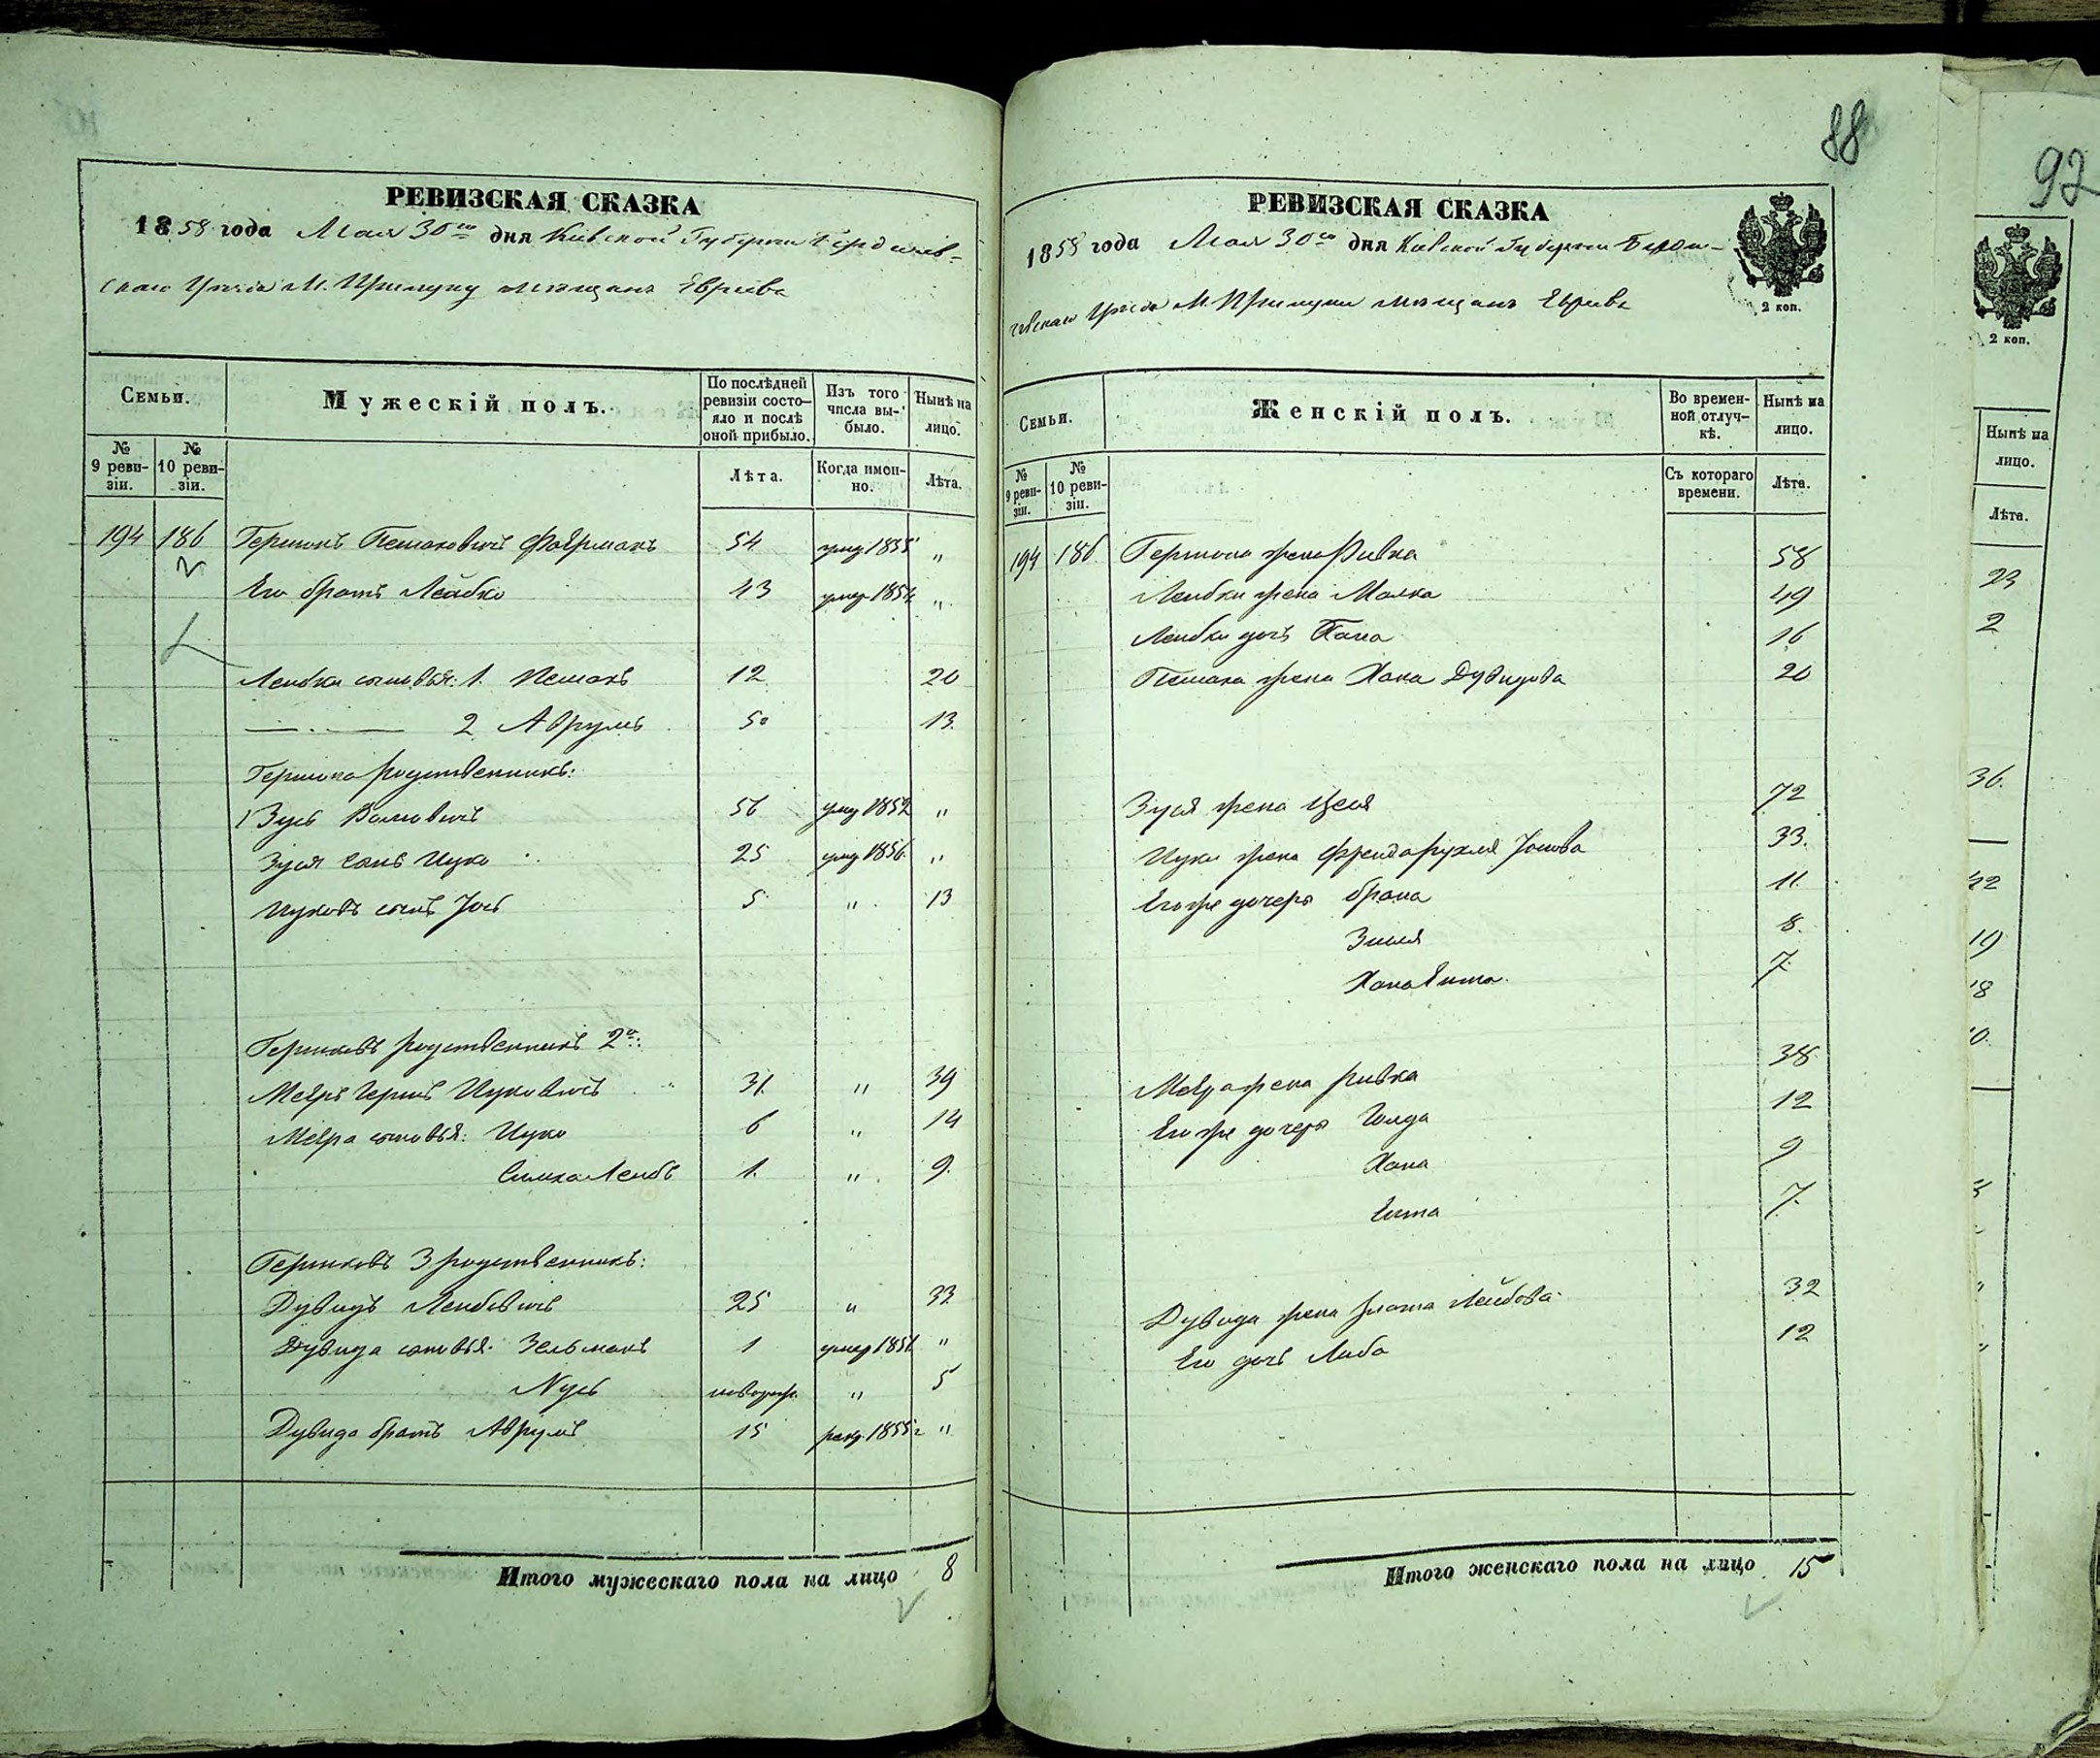 88
РЕВИЗСКАЯ СКАЗКА
1858 года Мая 30го дня Киевской Губернии Бердичев-
скаго Уезда М. Прилуку мещан Евреев
Семьи.
Мужескій полъ.
По послѣдней ревизіи состо-яло и послѣ оной прибыло.
Изъ того числа вы-было.
Нынѣ на лицо.
№ 9 реви-зіи.
№ 10 реви-зіи.
Лѣта.
Когда имен-но.
Лѣта.
194 186 Гершонъ Песаховичъ Фаерманъ 54 умер 1855 "
Его братъ Лейбко 43 умер 1854 "
Лейбки сыновья: 1. Песахъ 12 20
2 Аврумъ 5 13
Гершона родственникъ:
1 Зусь 56 умер 1852 "
Зуся сынъ Ицко 25 умер 1856 "
Ицковъ сынъ Іось 5 " 13
Гершковъ родственникъ 2й:
Мееръ Гершъ Ицковичъ 31. " 39
Меера сыновья: Ицко 6 " 14
Симха Лейбъ 1. " 9.
Гершковъ 3 родственникъ:
Дувидъ Лейбовичъ 25 " 33
Дувида сыновья: Зельманъ 1 умер 1851 "
Нусь новорож. " 5
Дувида братъ Аврумъ 15 рекр. 1855 г "
Итого мужескаго пола на лицо 8
РЕВИЗСКАЯ СКАЗКА
1858 года Мая 30го дня Киевской Губернии Берди-
чевскаго Уезда М. Прилуки мещан Евреев
2 коп.
Семьи.
Женскій полъ.
Во времен-ной отлуч-кѣ.
Нынѣ на лицо.
№ 9 реви-зіи.
№ 10 реви-зіи.
Съ котораго времени.
Лѣта.
194 186 Гершона жена Ривка 58
Лейбки жена Малка 49
Лейбки дочь Хана 16
Песаха жена Хана Дувидова 20
Зуся жена Цеся 72
Ицки жена Фрейда Рухля Іосова 33.
Его же дочери Брана 11.
Зисля 8.
Хана Ента. 7.
Меера жена Ривка 38
Его же дочери Голда 12
Хана 9
Ента 7.
Дувида жена Злата Лейбова 32
Его дочь Либа 12
Итого женскаго пола на лицо 15
92
2 коп.
Нынѣ на лицо.
Лѣта.
23
2
36.
19